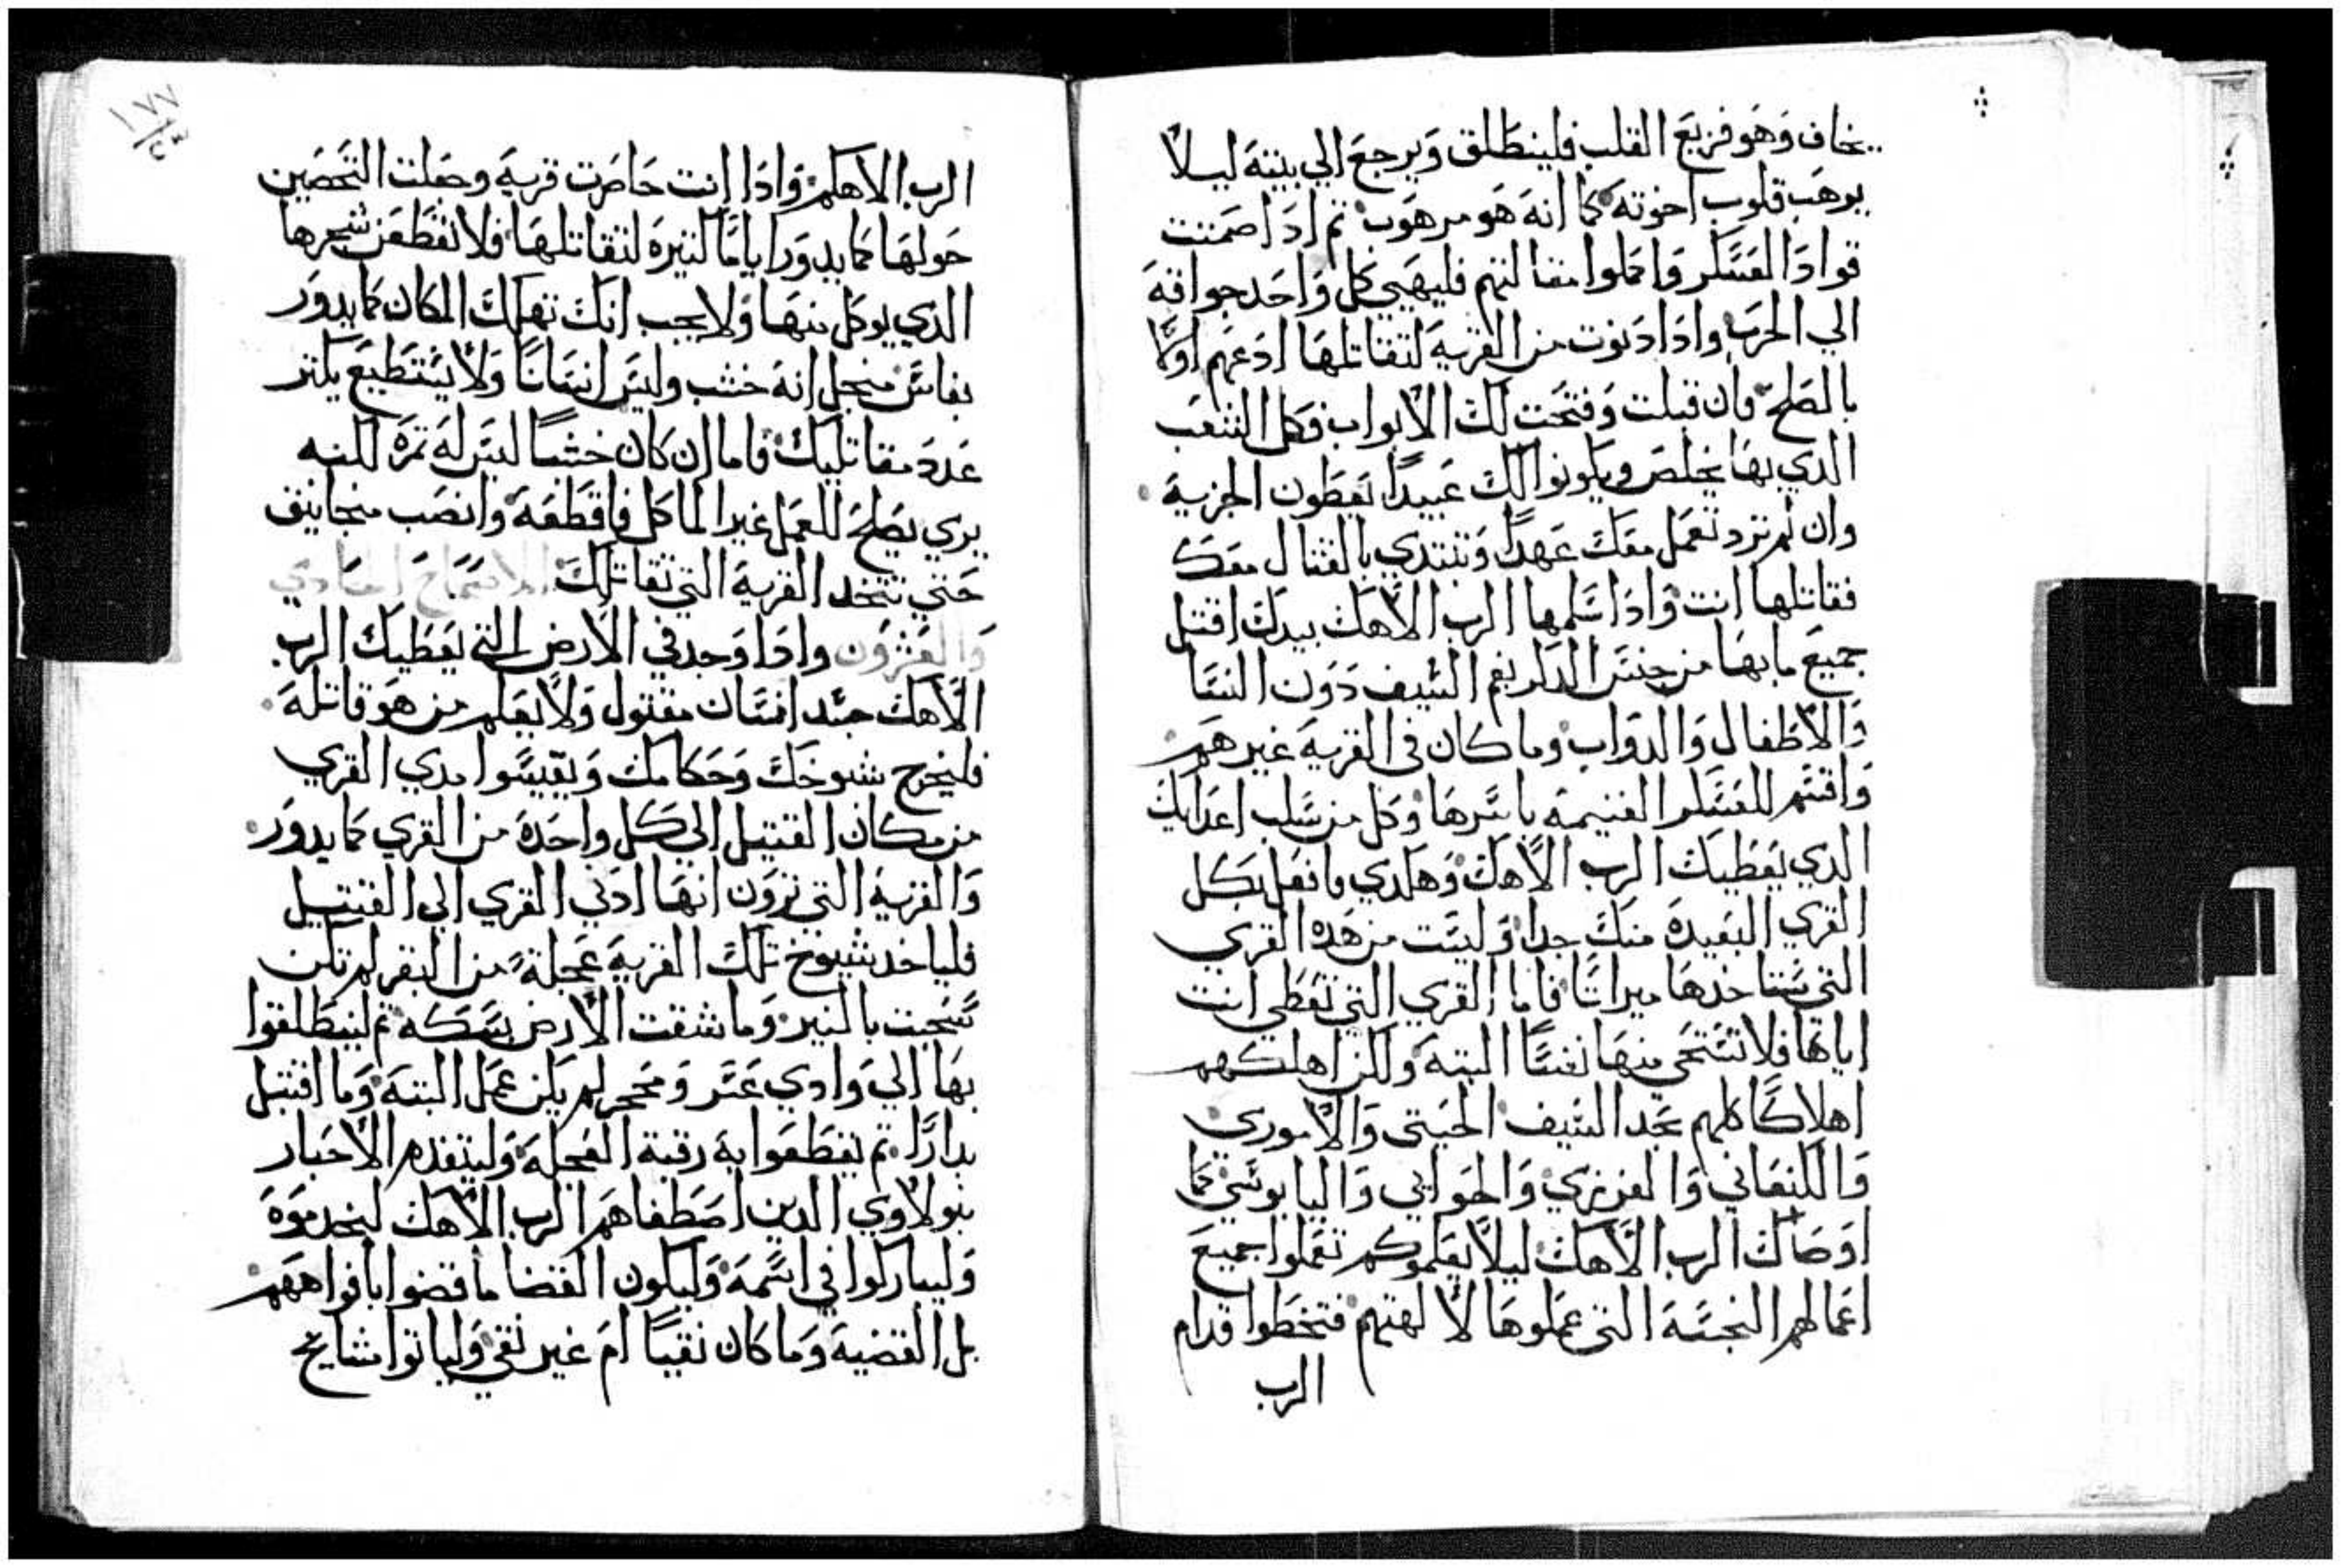 يخاف وَهَو فزيعَ القلب فلينطَلق وَيرجعَ الي بيتهَ ليلاً
يرهَب قلوب اخوتهَ كما انهَ هَو مرهَوب ثم ادَا صَمتت
قوادَ العسَكر وَاكملوا مقالتهم فليهَيي كل وَاحد جواقهَ
الي الحرَب وادَا دَنوت من القريهَ لتقاتلهَا ادعَهم اولاً
بالصَلح فان قبلت وَفتحَت لكَ الابواب فكل الشعَب
الدي بهَا يخلصَ ويكونوا لكَ عَبيداً يعَطون الجزيهَ
وان لم ترد تعَمل معَكَ عَهداً وَتبتدي بالقتال معَكَ
فقاتلها انت وَادَا سَلمها الرب الاهَك بيدكَ اقتل
جميعَ ما بهَا من جنسَ الدكر بفم السَيف دَوَن النسَا
وَالاطَفال وَالدوَاب وما كان فى القريهَ غيرهَم
وَاقتسَم للعسَكر الغنيمهَ باسَرهَا وَكل من سَلب اعدَايكَ
الدي يعَطيكَ الرب الاهَكَ وَهَكدي فافعَل بكل
القري البعَيدهَ منكَ جداً وَليسَت من هَدهَ القري
التي ستاخدهَا ميراتاً فاما القري التي تعَطَي انت
اياهَا فلا تسَتحَي منهَا نفسَاً البتهَ وَلكن اهلكهم
اهلاكاً كلهم بحَد السَيف الحَيتي وَالاموري
وَالكنعَاني وَالفرزي وَالحَوايي وَاليابوسَي كما
اوَصَاكَ الرب الاهَكَ ليلاً يعَلموكم تعَملوا جميعَ
اعَمالهم النجسَهَ التي عَملوهَا لالهتهم فتخطَوا قدام
الرب
١٧٧
الرب الاهكم وَادَا انت حَاصَرت قريهَ وجعَلت التحَصَين
حَولهَا كما يدوَر اياماً كتيرهَ لتقاتلهَا فلا تقطَعَن شجرها
الدي يوكل منهَا وَلا يجب انكَ تهَلكَ المكان كما يدوَر
بفاسَ منجل انهَ خشب وليسَ انسَاناً وَلا يستطَيعَ يكتر
عَددَ مقاتليكَ فاما ان كان خشباً ليسَ لهَ تمرهَ لكنه
يري يصَلحَ للعَمل غير الماكل فاقطَعَهَ وانصَب منجانيق
حَتي تتخد القريهَ التي تقاتلكَ الاصَحَاحَ الحَادي
وَالعَشرَون وادَا وَجد في الارض التي يعَطيكَ الرب
الاهَكَ جسَد انسَان مقتول وَلا يعَلم من هوَ قاتلهَ
فليخرج شيوخكَ وَحَكامكَ وَيقيسَوا مدي القري
من مكان القتيل الي كل واحَدهَ من القري كما يدوَر
وَالقريهَ التي تروَن انهَا ادَني القري الي القتيل
فلياخد شيوخ تلكَ القريهَ عَجلهَ من البقر لم تكن
سَحَبت بالنير وَما شقت الارض بسَكه تم لينطَلقوا
بهَا الي وَادي عَسَر وَمحجر لم يكن عَمل البتهَ وَما افتبل
بداراً تم يقطَعَوا بهَ رقبة العَجلهَ وَليتقدم الاحَبار
بنو لاوَي الدين اصَطَفاهَم الرب الاهَكَ ليخدموَهَ
وَليباركوا في اسَمهَ وَليكون القضا ما قضوا بافواههم
بل القضيهَ وَما كان نقياً امَ غير نقي وَلياتوا مشايخ